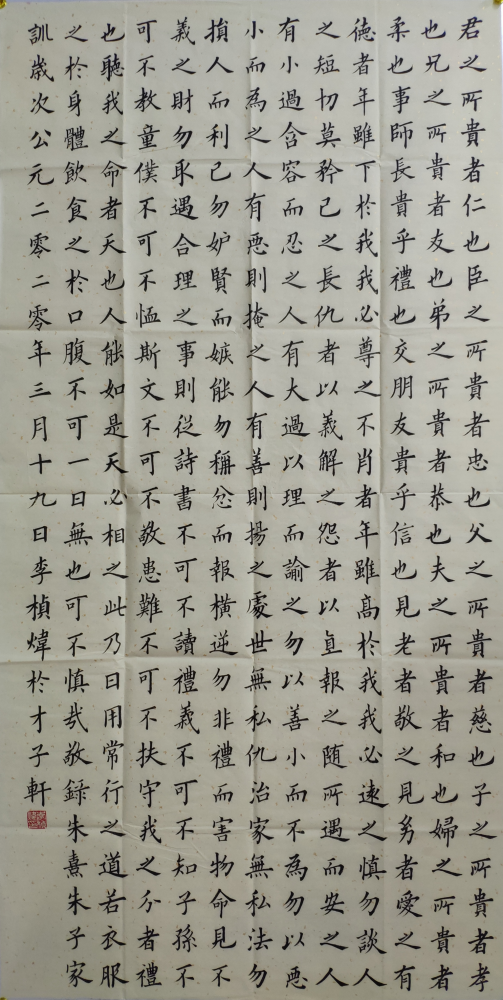 君之所貴者仁也臣之所貴者忠也父之所貴者慈也子之所貴者孝
也兄之所貴者友也弟之所貴者恭也夫之所貴者和也婦之所貴者
柔也事師長貴乎禮也交朋友貴乎信也見老者敬之見幼者愛之有
德者年雖下於我我必尊之不肖者年雖高於我我必遠之慎勿談人
之短切莫矜己之長仇者以義解之怨者以直報之随所遇而安之人
有小過含容而忍之人有大過以理而諭之勿以善小而不為勿以惡
小而為之人有惡則掩之人有善則揚之處世無私仇治家無私法勿
損人而利己勿妒賢而嫉能勿稱忿而報橫逆勿非禮而害物命見不
義之財勿取遇合理之事則從詩書不可不讀禮義不可不知子孫不
可不教童僕不可不恤斯文不可不敬患難不可不扶守我之分者禮
也聽我之命者天也人能如是天必相之此乃日用常行之道若衣服
之於身體飲食之於口腹不可一日無也可不慎哉敬録朱熹朱子家
訓歲次公元二零二零年三月十九日李楨煒於才子軒